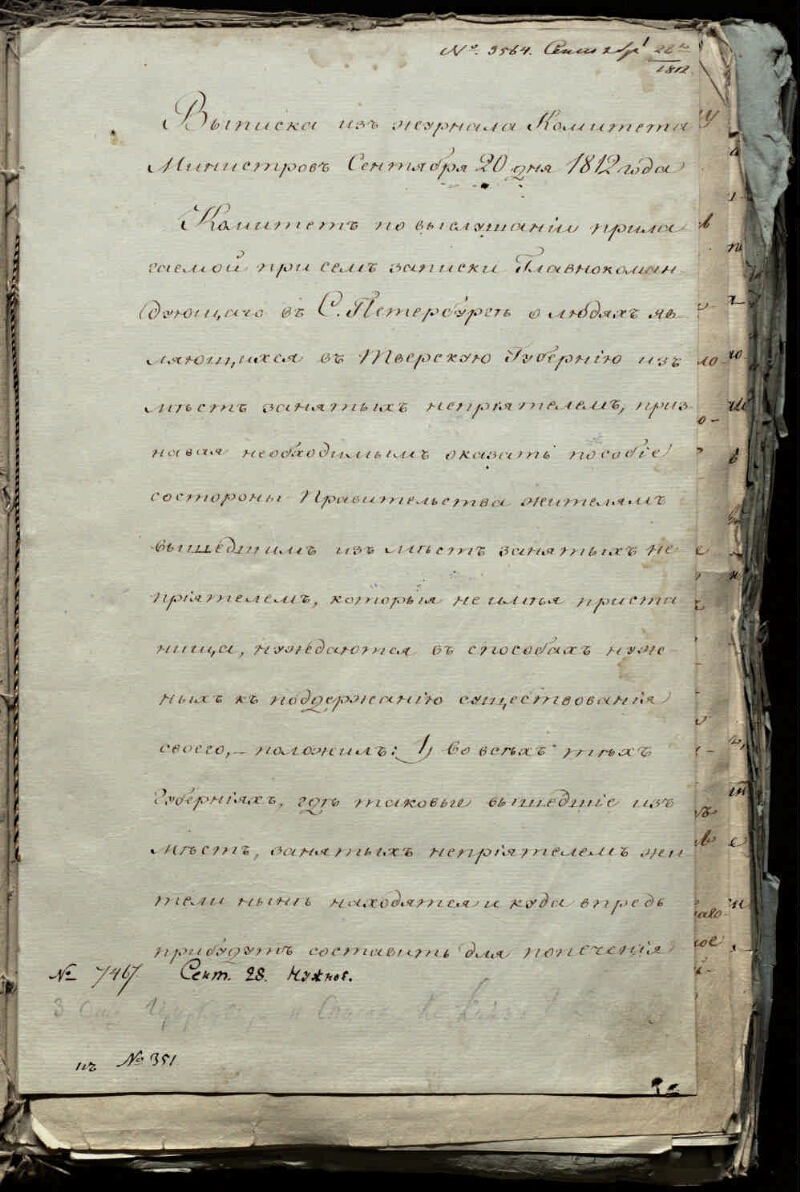 № 3564. 28го
1812
Выписка изъ журнала Комитета
Министровъ Сентября 20 дня 1812 года
Комитетъ по выслушаніи прила-
гаемой при семъ записки Главнокоман
дующаго въ С. Петербургѣ о людяхъ яв
ляющихся въ Тверскую Губернію изъ
мѣстъ занятыхъ непріятелемъ, приз
навая необходимымъ оказать пособіе
состороны Правительства жителямъ
вышедшимъ изъ мѣстъ занятыхъ не-
пріятелемъ, которыя не имѣя приста
нища, нуждаются въ способахъ нуж
ныхъ къ подержанію существованія
своего, – положилъ: 1) Во всѣхъ тѣхъ
Губерніяхъ, гдѣ таковые вышедшіе изъ
мѣстъ, занятыхъ непріятелемъ жи
тели нынѣ находятся и куда впредь
прибудутъ составить для попеченія
№ 7467 Сент. 28. Нужное.
къ № 351